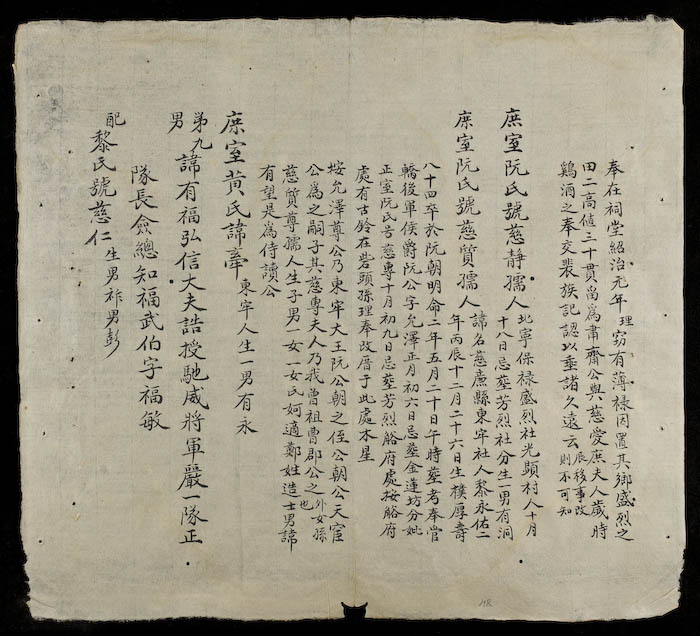 奉在祠堂紹治元年理窃有薄祿因置其鄉盛烈之
田二高値三十貫畱為肅齋公與慈愛庶夫人歲時
鷄酒之奉交裴族記認以垂諸久遠云辰移事改則不可知
庶室阮氏號慈靜孺人北寧保祿盛烈社光顯村人十月
十八日忌塟芳烈社分生一男有洞
庶室阮氏號慈質孺人諱名慈廉縣東牢社人黎永佑二
年丙辰十二月二十六日生樸厚壽
八十四卒於阮朝明命二年五月二十日午時塟考奉嘗
轎後軍侯爵阮公字允澤正月初六日忌塟金蓮坊分妣
正室阮氏号慈專十月初九日忌塟芳烈府處按府
處有古鈴在砦頭孫理奉改厝于此處本星
按允澤尊公乃東牢大王阮公朝之侄公朝公天宦
公為之嗣子其慈專夫人乃我曾祖曹郡公之外女孫也
慈質尊孺人生子男一女一女氏妸適鄭姓造士男諱
有望是為侍讀公
庶室黄氏諱牽東牢人生一男有永
第九男諱有福弘信大夫誥授馳威將軍嚴一隊正
隊長僉總知福武伯字福敏
配黎氏號慈仁生男祚男彭